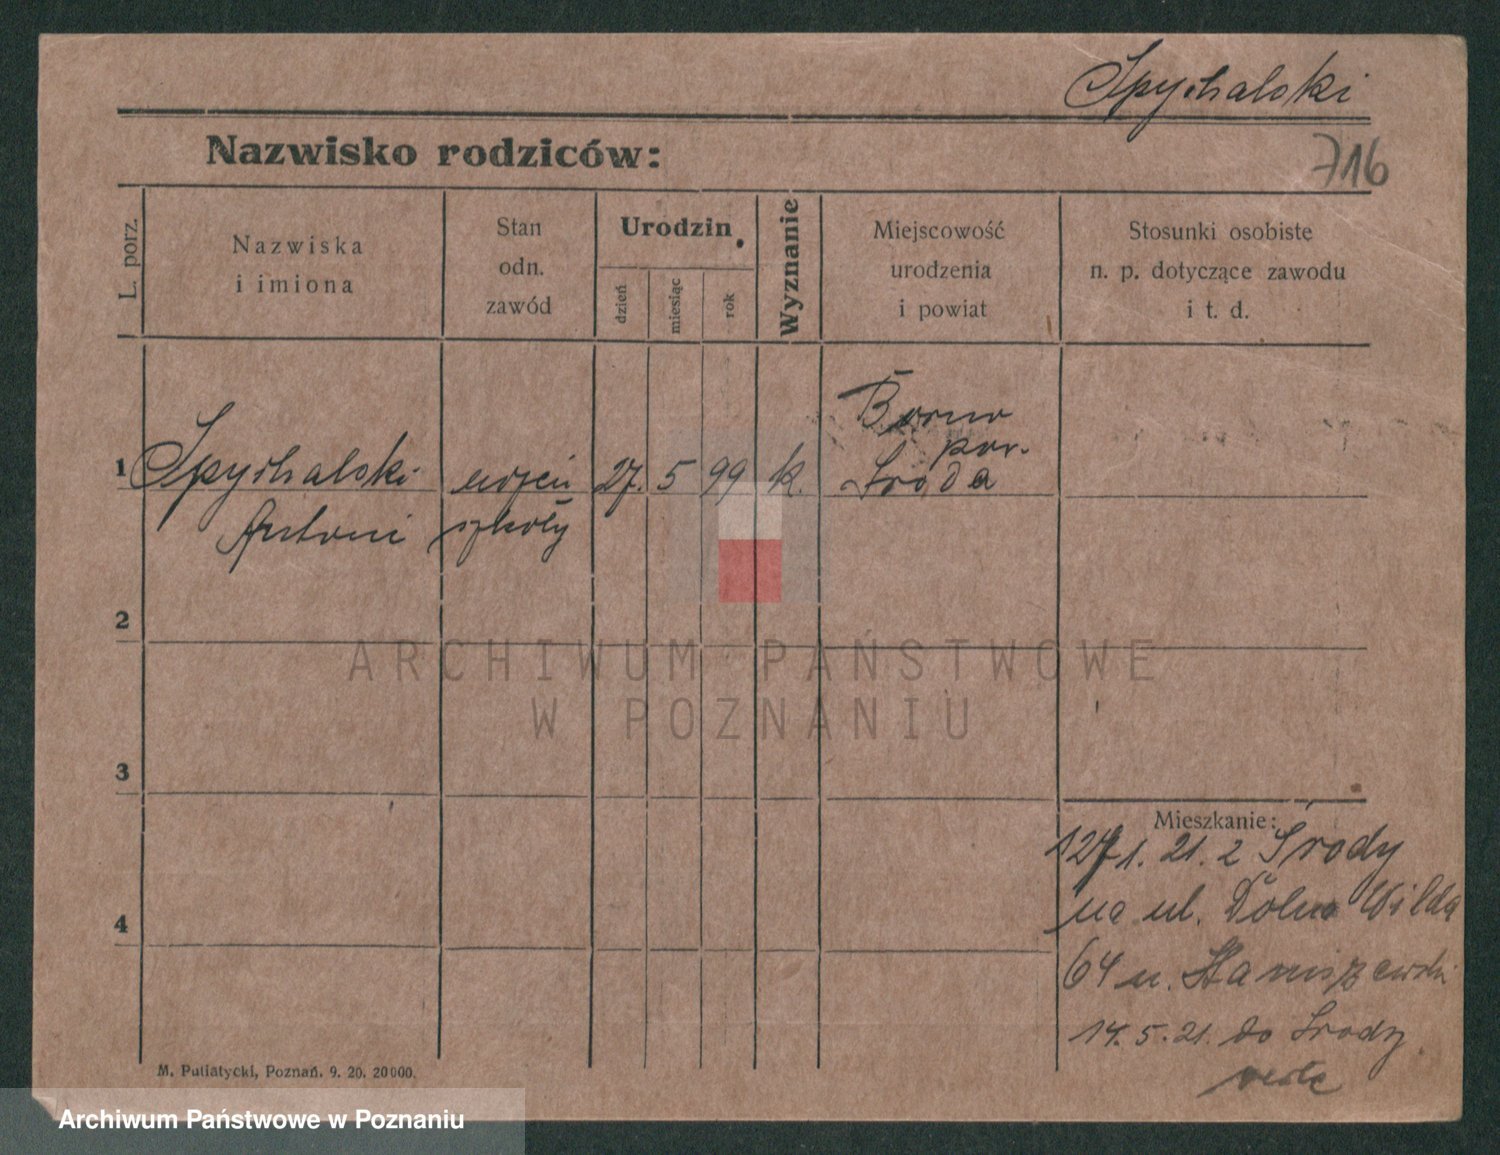 Spychalski
Nazwisko rodziców:
716
L. porz.
Nazwiska
i imiona
Stan
odn.
zawód
Urodzin
dzień
miesiąc
rok
Wyznanie
Miejscowość
urodzenia
i powiat
Stosunki osobiste
n. p. dotyczące zawodu
i t. d.
1 Spychalski uczeń 27. 5 99 k. Borowo
pow.
Środa
Antoni szkoły
2
3
4
Mieszkanie:
1. 21. z Środy
na ul. Dolna Wilda
64 u. Staniszewski
14. 5. 21. do Środy
M. Putiatycki, Poznań. 9. 20. 20000.
ARCHIWUM PAŃSTWOWE
W POZNANIU
Archiwum Państwowe w Poznaniu